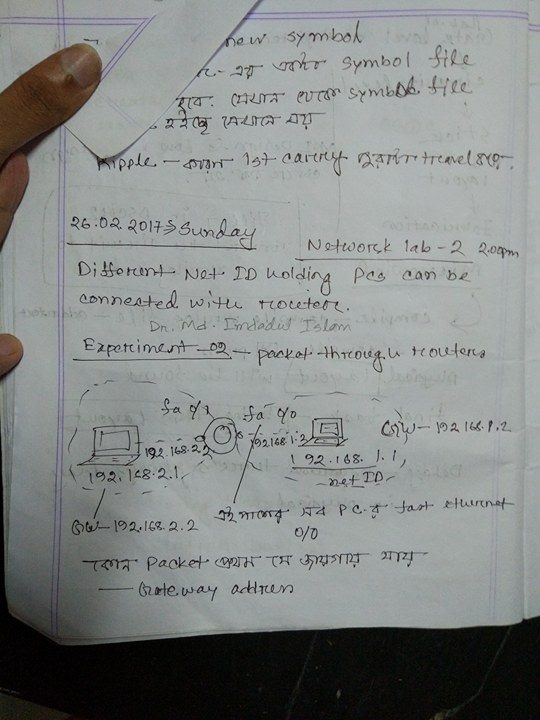 new symbol
এর একটা symbol file
হবে. সেখান থেকে symbol file
হইছে সেখানে এর
Ripple - কারন 1st carry পুরাটা travel করে.
26.02.2017 Sunday
Network lab - 2 2.00pm
Different Net ID holding PCs can be
connected with router.
Dr. Md. Imdadul Islam
Experiment - 02 - packet through routers
fa 0/1 fa 0/0
192.168.2.2 192.168.1.2 GW - 192.168.1.2
192.168.2.1 192.168.1.1
net ID
GW - 192.168.2.2 এই পাশের সব PC র fast ethernet
0/0
কোন Packet প্রথম যে জায়গায় যায়
— Gateway address